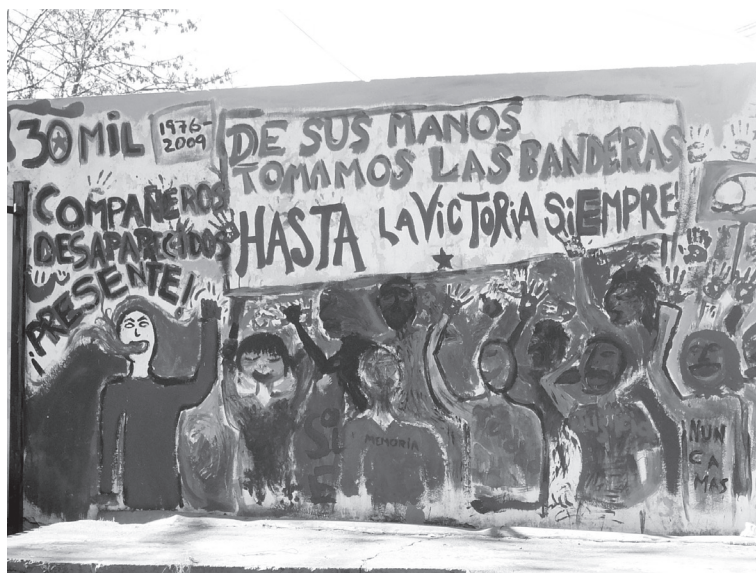 30 MIL
1976-
2009
COMPAÑEROS
DESAPARECIDOS
¡PRESENTE!
DE SUS MANOS
TOMAMOS LAS BANDERAS
HASTA LA VICTORIA SIEMPRE!
MEMORIA
NUN
CA
MAS